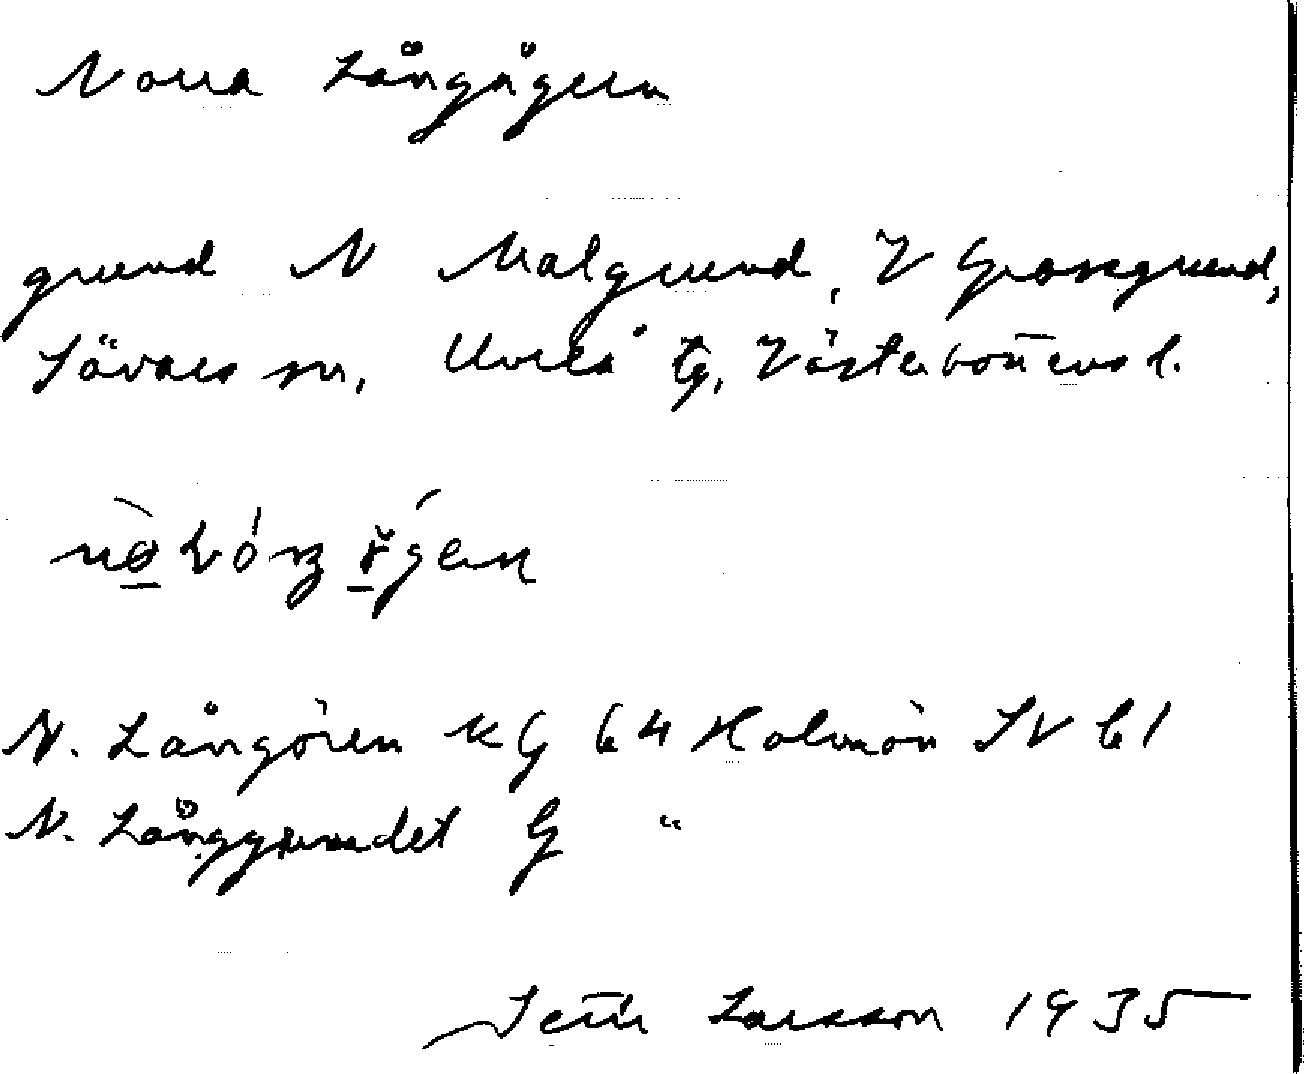 Norra Långögern
grund N Malgrund, V Grossgrund,
Sävars sn, Umeå tg, Västerbottens l.
N. Långören KG 64 Holmön SV b1
N. Långgrundet G "
Setti Larsson 1935